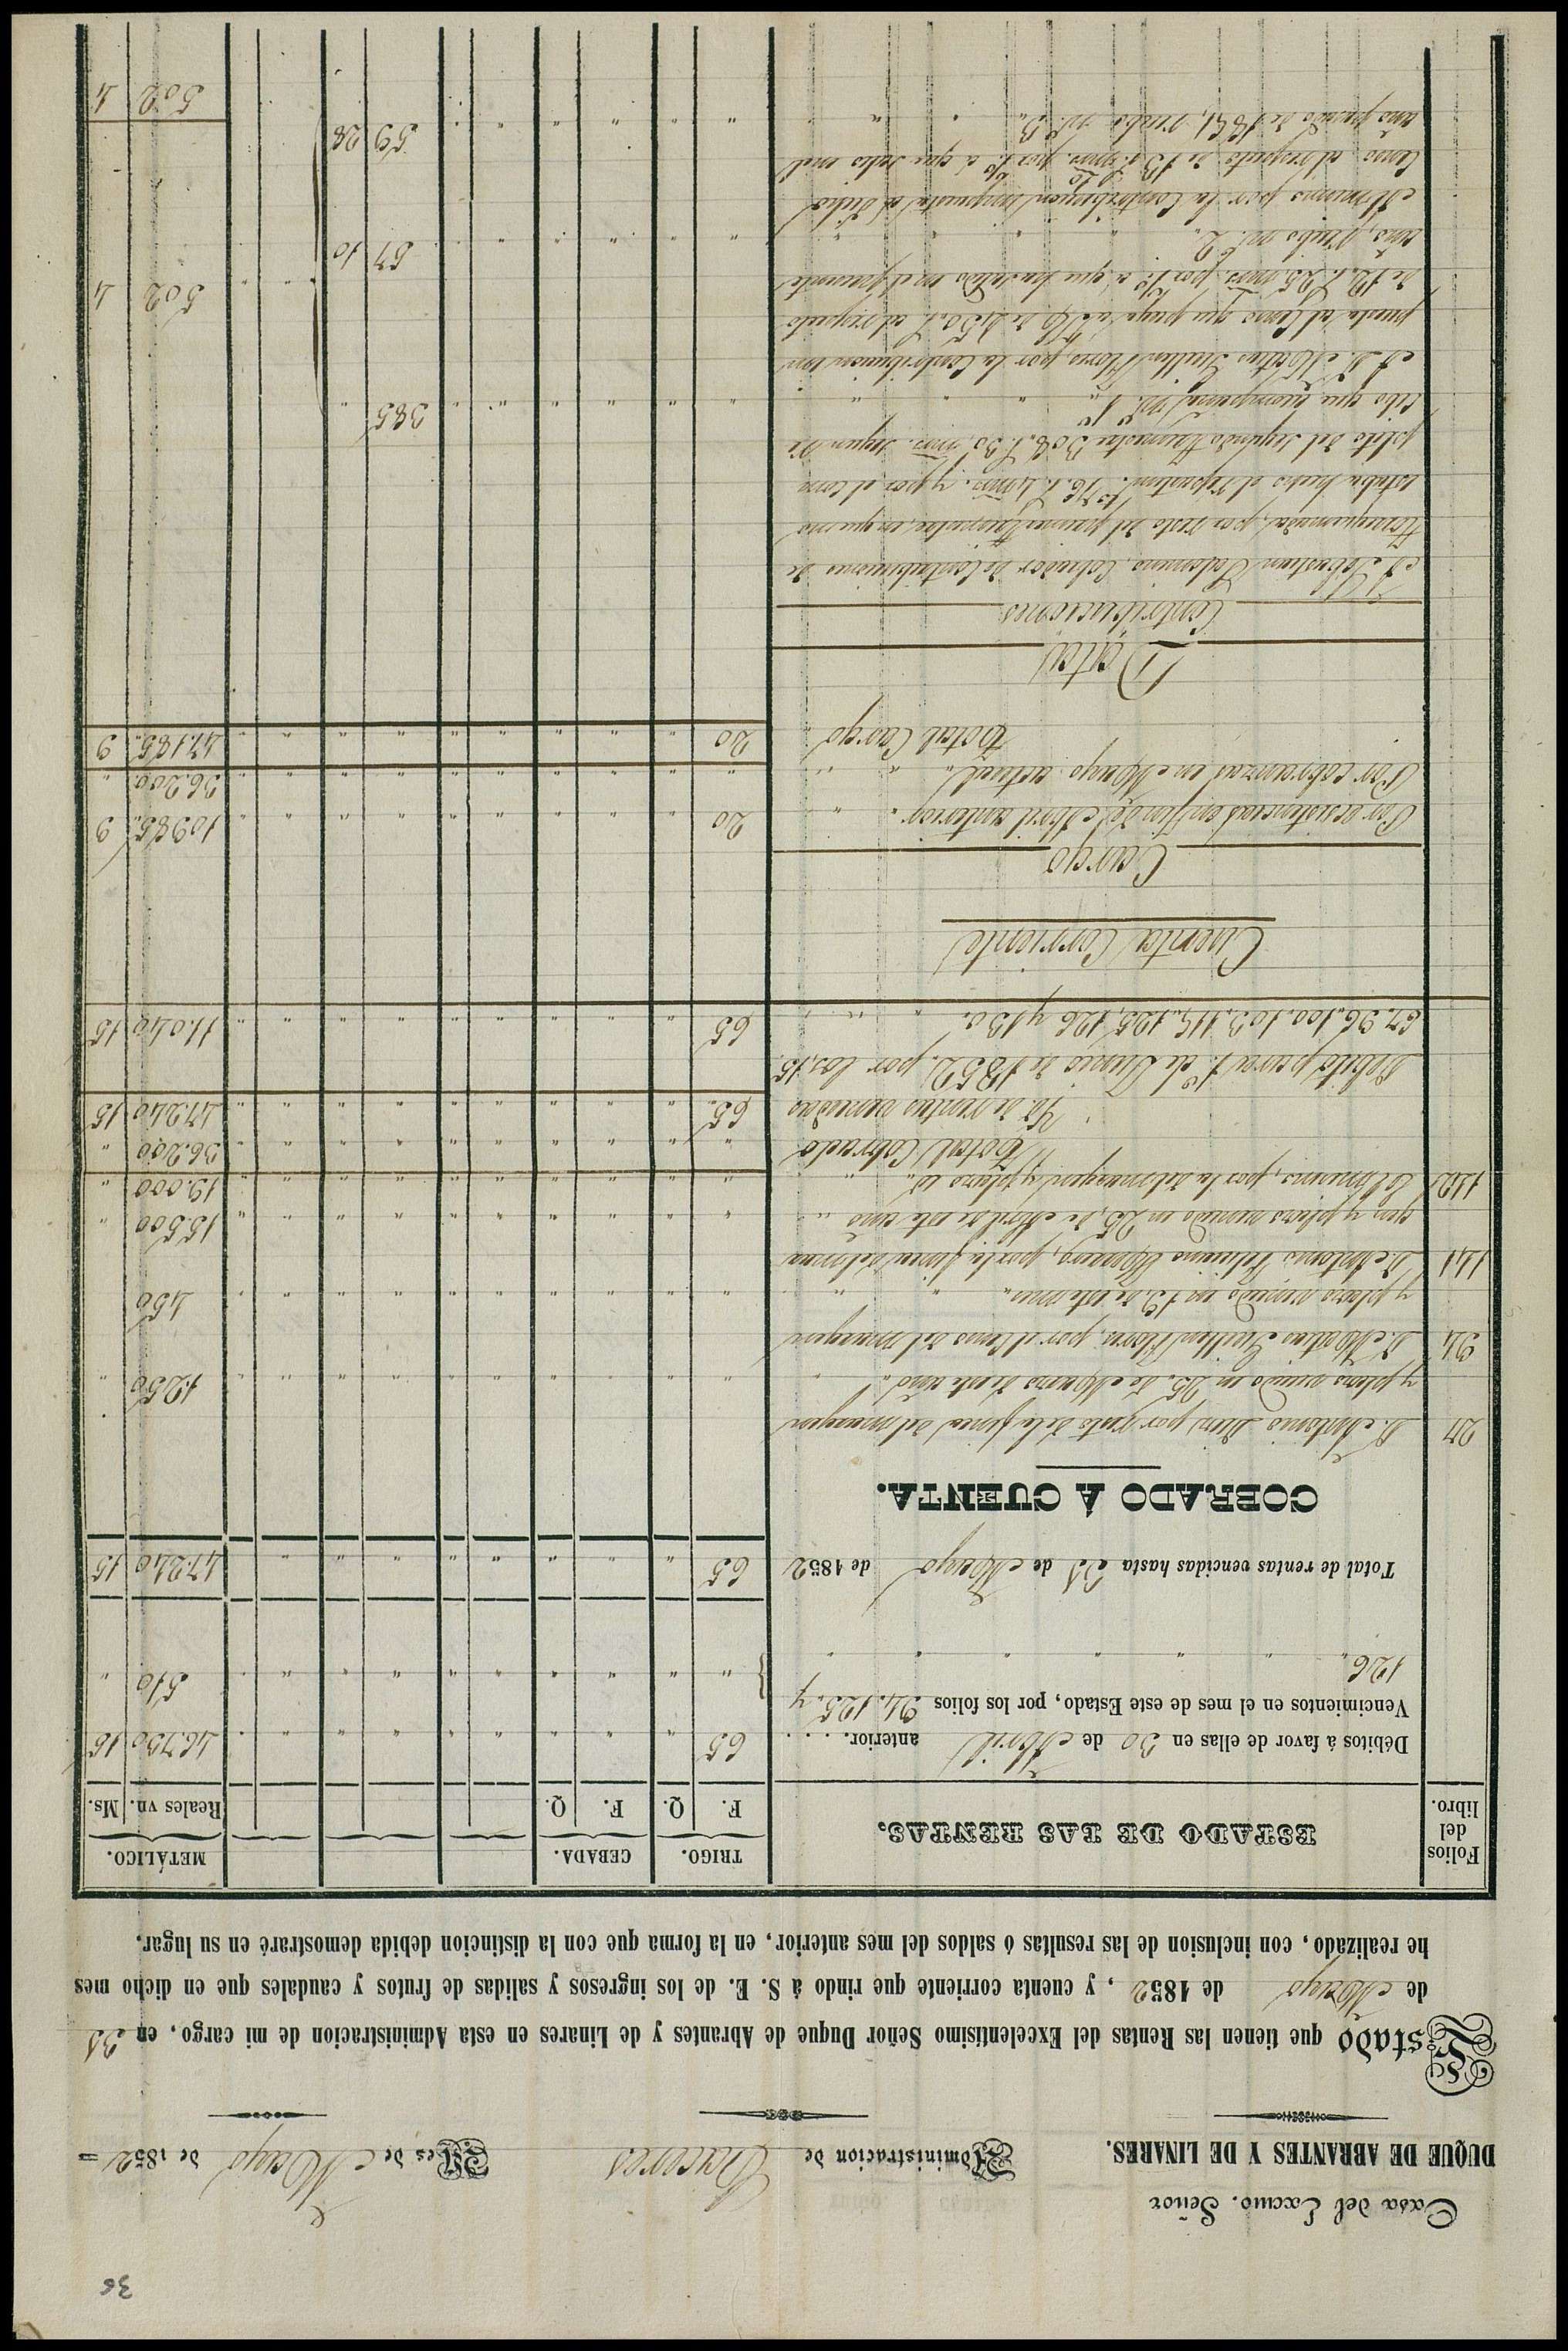 36
Casa del Excmo. Señor
DUQUE DE ABRANTES Y DE LINARES.
Administracion de Caceres
Mes de Mayo de 1852
Estado que tienen las Rentas del Excelentísimo Señor Duque de Abrantes y de Linares en esta Administracion de mi cargo, en 31
de Mayo de 1852, y cuenta corriente que rindo á S. E. de los ingresos y salidas de frutos y caudales que en dicho mes
he realizado, con inclusion de las resultas ó saldos del mes anterior, en la forma que con la distincion debida demostraré en su lugar.
Folios del libro. ESTADO DE LAS RENTAS. TRIGO. CEBADA. METÁLICO.
F. Q. F. Q. Reales vn. Ms.
Débitos á favor de ellas en 30 de Abril anterior. . . . 65 " " " " " " " " " 46.730 15
Vencimientos en el mes de este Estado, por los folios 94. 125. y
126. " " " " " " " " " " 510 "
Total de rentas vencidas hasta 31 de Mayo de 1852 65 " " " " " " " " " 47.240 15
COBRADO Á CUENTA.
27 D. Antonio por resto de la finca del margen
y plazo vencido en 25. de Marzo de este año " " " " " " " " " " 1250 "
94 D. Matias Guillen Flores, por el censo del margen
y plazo vencido en 19. de este mes " " " " " " " " " " 450
141 D. Antonio Feliciano por la finca del mar
gen y plazo vencido en 25, de Abril de este año " " " " " " " " " " 15.500 "
142 El mismo, por la del margen y plazo id. " " " " " " " " " " 19.000 "
Total Cobrado " " " " " " " " " " 36.200 "
Yd. de rentas vencidas 65 " " " " " " " " " 47.240 15
Débito para 1º de Junio de 1852, por los, 15.
67. 96. 100. 103. 114. 125, 126 y 130. 65 " " " " " " " " " 11.040 15
Cuenta Corriente
Cargo
Por ecsistencias en fin de Abril anterior. 20 " " " " " " " " " 10985 9
Por cobranzas en Mayo actual " " " " " " " " " " 36.200 "
Total Cargo 20 " " " " " " " " " 47.185 9
Data
Contribuciones
A D. Sebastian Palomino, Cobrador de Contribuciones de
por resto del primer trimestre, en que no
estaba hecho el repartim.to 76. r. 4 mrs. y por el com
pleto del segundo trimestre 308. r. 30 mrs. segun re
cibo que acompaña nº. 1º " " " " " " " " 385 "
A D. Matias Guillen Flores, por la Contribucion im
puesta al Censo que paga a S.E. de 450. r. al respecto
de 12. r. 25 mrs. por % a que ha salido en el presente
año, recibo nº. 2. " " " " " " " " 57 10 502 4
Al mismo por la Contribucion impuesta al dicho
Censo al respecto de 13 r. mrs. por % a que salio en el
año pasado de 1851, recibo nº. 3. " " " " " " " " 59 28
502 4